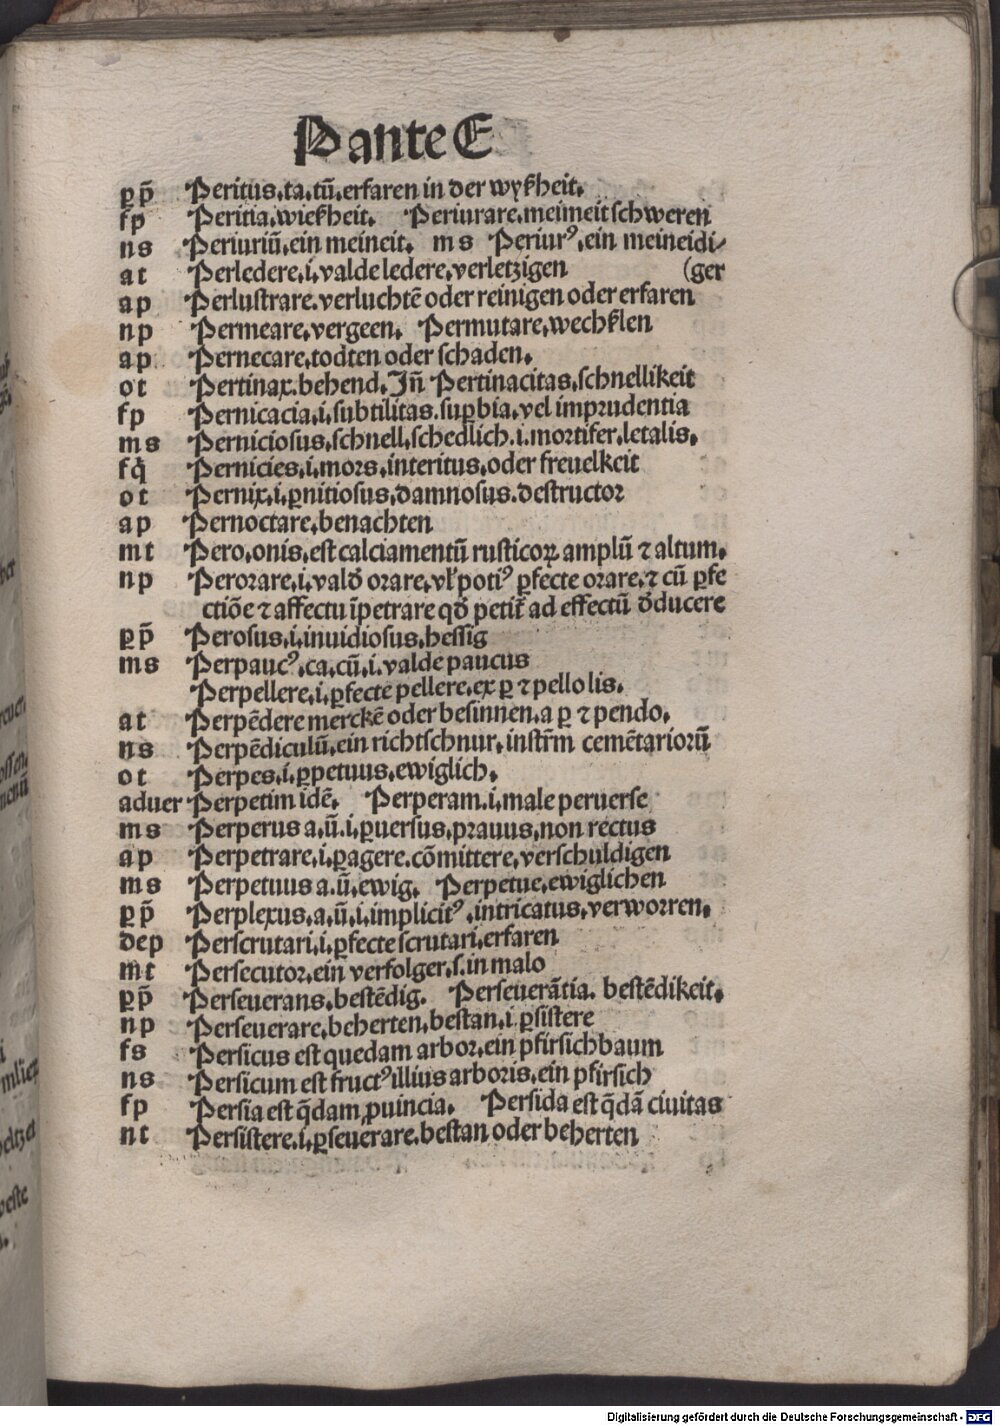 P ante E
ꝑp̄ Peritus,ta,tū,erfaren in der wyſheit,
fp Peritia,wieſheit, Periurare,meineit ſchweren
ns Periuriū,ein meineit, ms Periurꝰ,ein meineidi⸗
at Perledere,i,valde ledere,verletzigen (ger
ap Perluſtrare.verluchtē oder reinigen oder erfaren
np Permeare,vergeen, Permutare,wechſlen
ap Pernecare,todten oder ſchaden,
ot Pertinax.behend.Iñ Pertinacitas,ſchnellikeit
fp Pernicacia,i,ſubtilitas.ſuꝑbia,vel imprudentia
ms Pernicioſus,ſchnell,ſchedlich.i.mortifer,letalis,
fq̄ Pernicies,i,mors,interitus,oder freuelkeit
ot Pernix,i,ꝑnitioſus,damnoſus.deſtructor
ap Pernoctare,benachten
mt Pero,onis,eſt calciamentū ruſticoꝝ amplū ⁊ altum,
np Perorare,i,vald̓ orare,vl̓ potiꝰ ꝑfecte orare,⁊ cū ꝑfe
ctiōe ⁊ affectu īpetrare qd̓ petit̄ ad effectū d̓ducere
ꝑp̄ Peroſus,i,inuidioſus,heſſig
ms Perpaucꝰ,ca,cū,i,valde paucus
Perpellere,i,ꝑfecte pellere,ex ꝑ ⁊ pello lis,
at Perpēdere merckē oder beſinnen,a ꝑ ⁊ pendo,
ns Perpēdiculū,ein richtſchnur,inſtr̄m cemētariorū
ot Perpes,i,ꝑpetuus,ewiglich,
aduer Perpetim idē, Perperam.i,male peruerſe
ms Perperus a,ū.i,ꝑuerſus,prauus,non rectus
ap Perpetrare,i,ꝑagere.cōmittere,verſchuldigen
ms Perpetuus a.ū,ewig, Perpetue,ewiglichen
ꝑp̄ Perplexus,a,ū,i,implicitꝰ,intricatus,verworren,
dep Perſcrutari,i,ꝑfecte ſcrutari,erfaren
mt Perſecutor,ein verfolger,ſ.in malo
ꝑp̄ Perſeuerans,beſtēdig, Perſeuerātia. beſtēdikeit,
np Perſeuerare,beherten,beſtan,i ꝑſiſtere
fs Perſicus eſt quedam arbor,ein pfirſichbaum
ns Perſicum eſt fructꝰ illius arboris,ein pfirſich
fp Perſia eſt q̄dam ꝓuincia, Perſida eſt q̄dā ciuitas
nt Perſiſtere,i,ꝑſeuerare,beſtan oder beherten
Digitalisierung gefördert durch die Deutsche Forschungsgemeinschaft - DFG